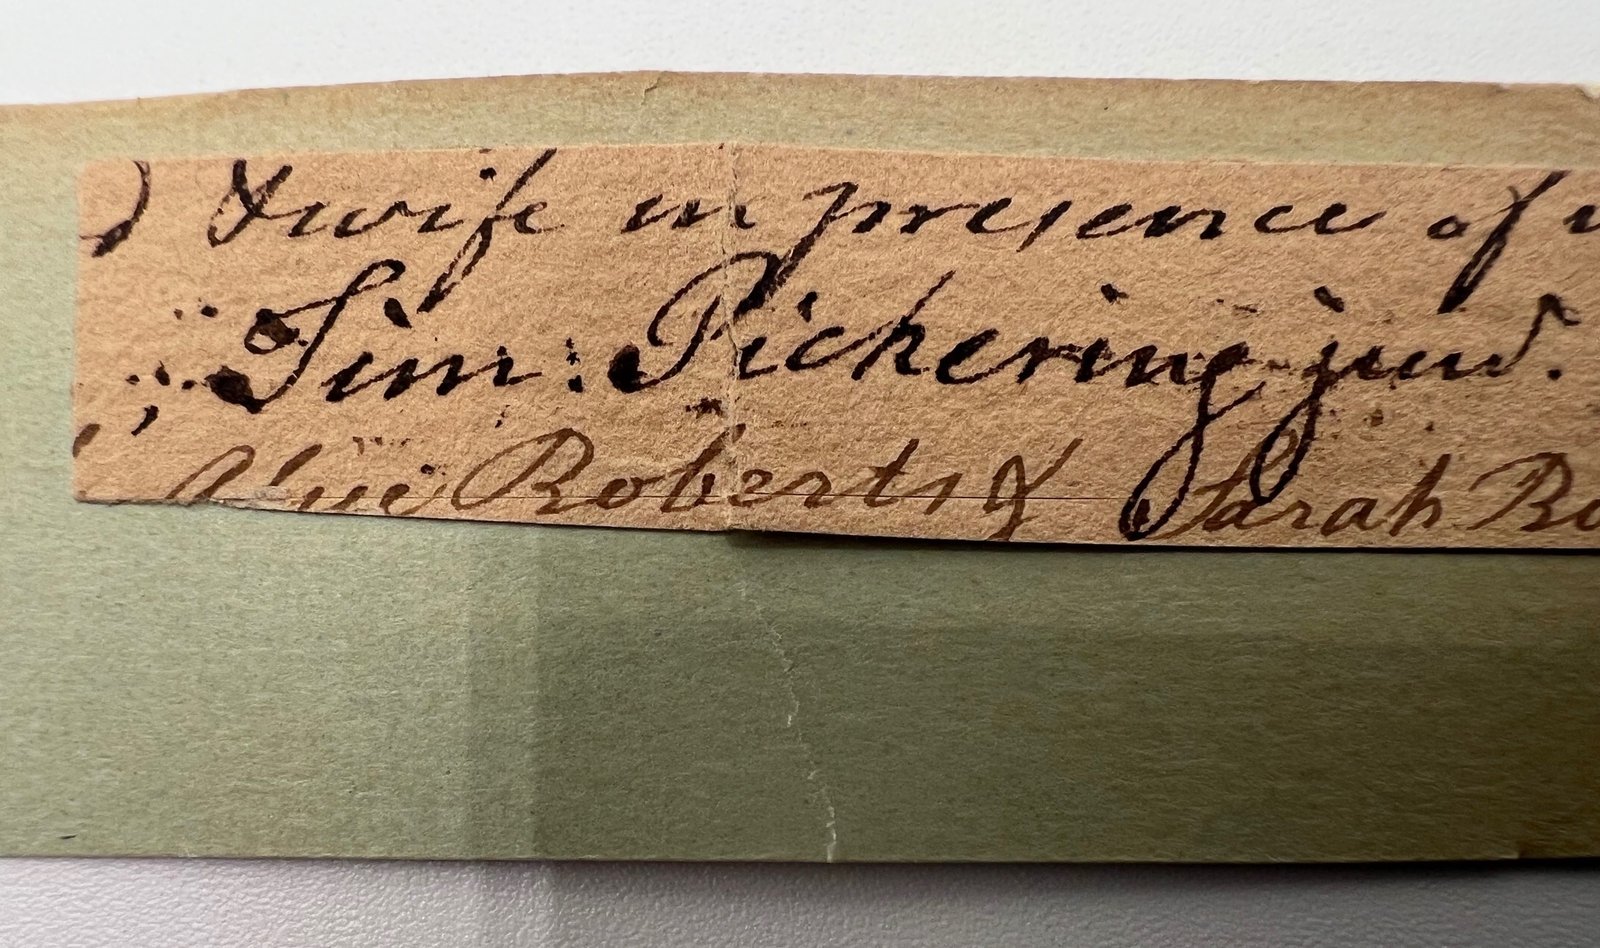 & wife in presence of
Tim: Pickering junr.
Roberts & Sarah